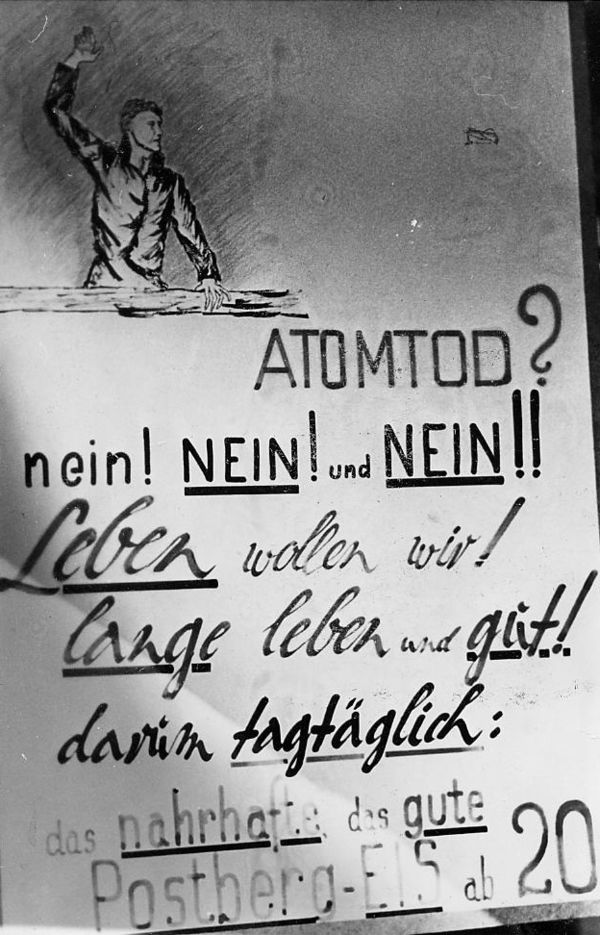 ATOMTOD?
nein! NEIN! und NEIN!!
Leben wollen wir!
lange leben und gut!
darum tagtäglich:
das nahrhafte, das gute
Postberg-EIS ab 20